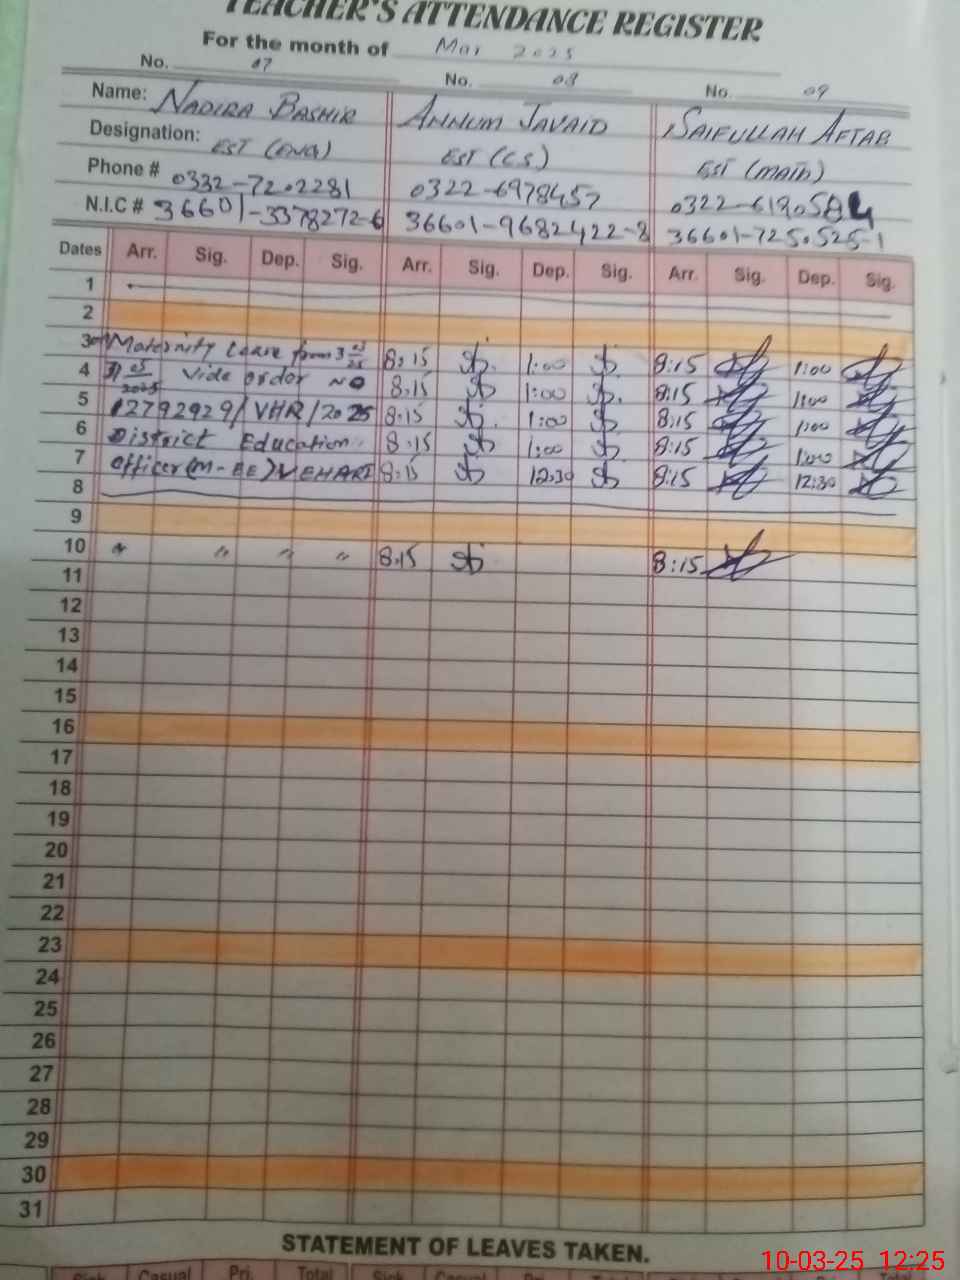 TEACHER'S ATTENDANCE REGISTER
For the month of Mar 2025
No. 07 No. 08 No. 09
Name: NADIRA BASHIR ANNUM JAVAID SAIFULLAH AFTAB
Designation: EST (ENG) EST (C.S) EST (MATH)
Phone # 0332-7202281 0322-6978457 0322-6190584
N.I.C # 36601-3378272-6 36601-9682422-8 36601-7250525-1
Dates Arr. Sig. Dep. Sig. Arr. Sig. Dep. Sig. Arr. Sig. Dep. Sig.
1
2
3 Maternity Leave from 3 8:15 1:00 8:15 1:00
4 31 2025 vide order NO 8:15 1:00 8:15 1:00
5 12792929/VHR/2025 8:15 1:00 8:15 1:00
6 District Education 8:15 1:00 8:15 1:00
7 officer (M-EE) VEHARI 8:15 12:30 8:15 12:30
8
9
10 " " " " 8:15 8:15
11
12
13
14
15
16
17
18
19
20
21
22
23
24
25
26
27
28
29
30
31
STATEMENT OF LEAVES TAKEN.
Sick Casual Pri. Total Sick Casual
10-03-25 12:25